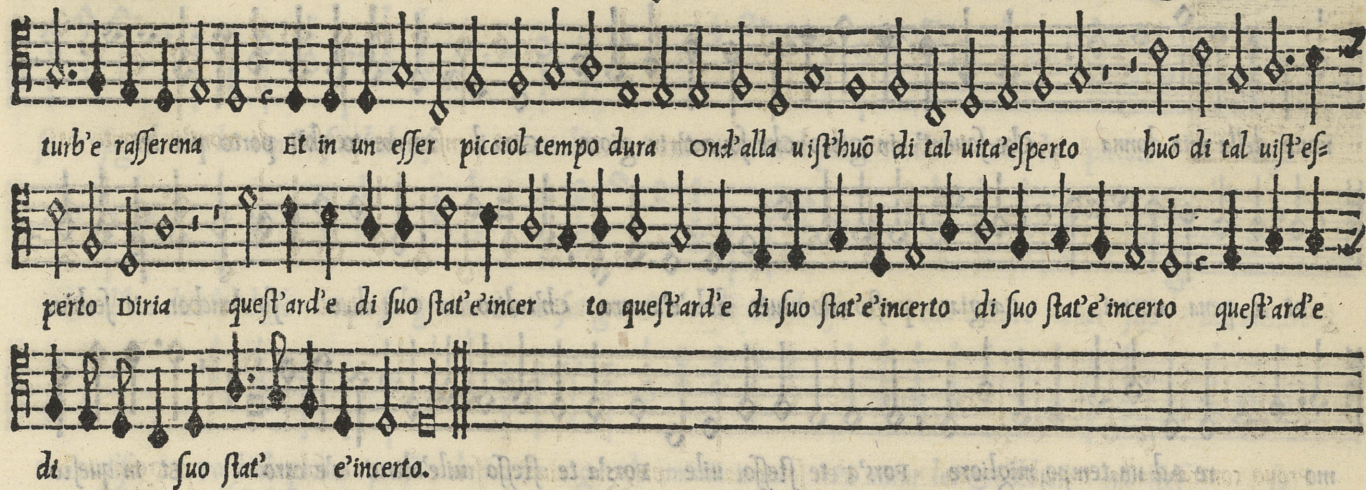 turb'e raſſerena Et in un eſſer picciol tempo dura Ond'alla uiſt'huõ di tal uita'eſperto huõ di tal uiſt'eſ=
perto Diria queſt'ard'e di ſuo ſtat'e'incer to queſt'ard'e di ſuo ſtat'e'incerto di ſuo ſtat'e'incerto queſt'ard'e
di ſuo ſtat' e'incerto.